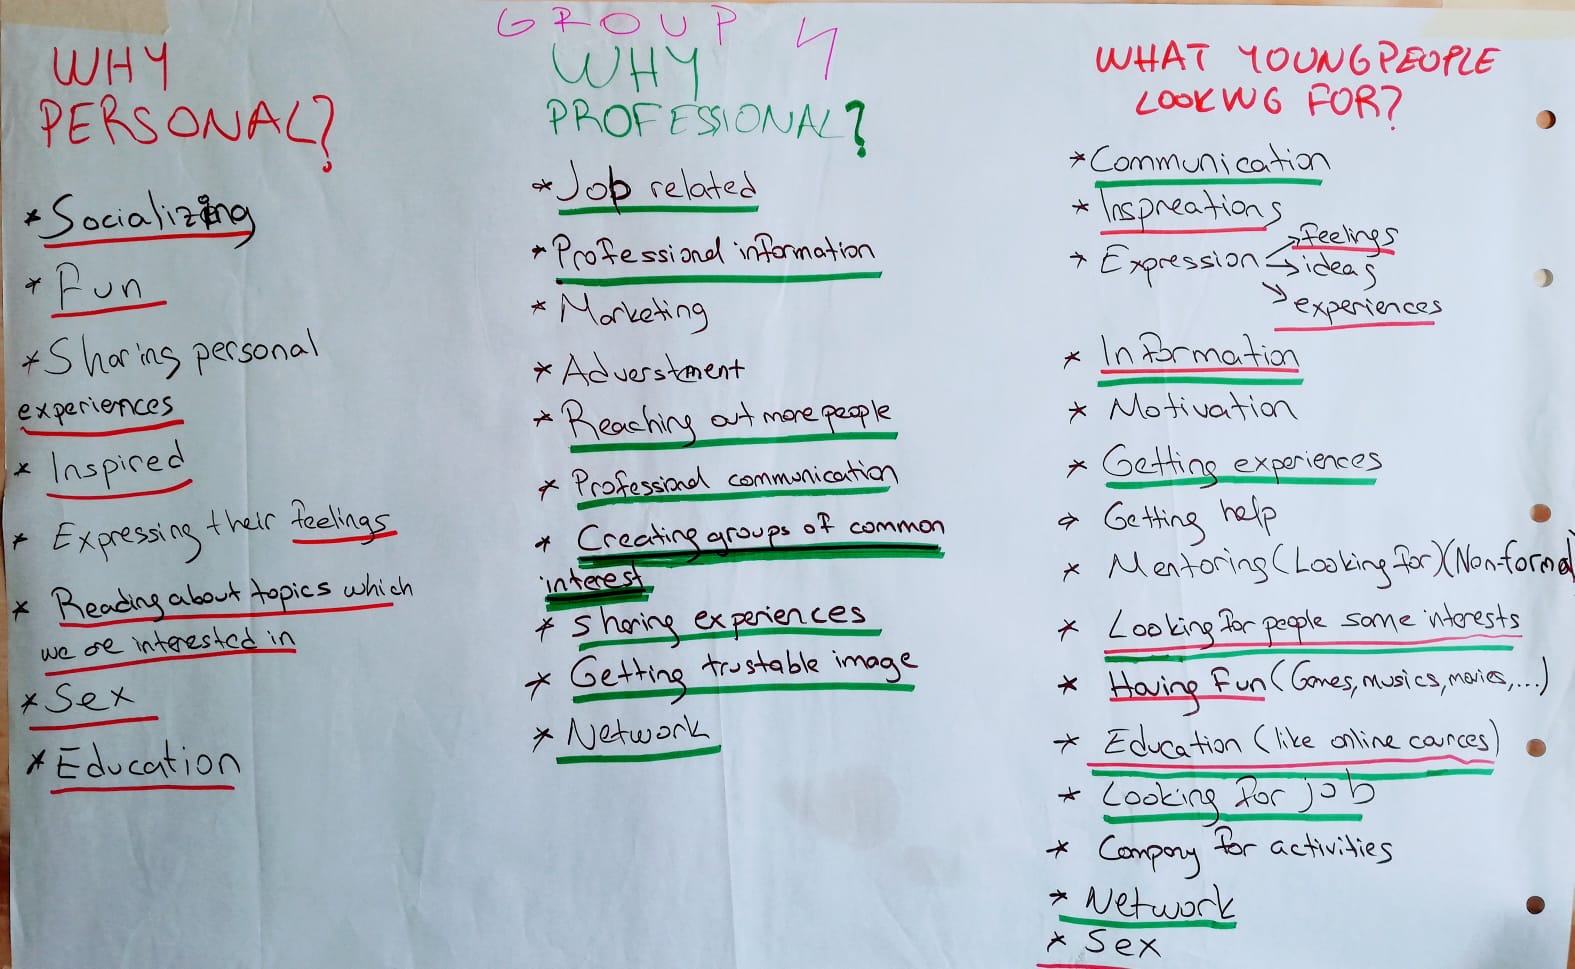 GROUP 4
WHY
PERSONAL?
* Socializing
* Fun
* Sharing personal
experiences
* Inspired
* Expressing their feelings
* Reading about topics which
we are interested in
* Sex
* Education
WHY
PROFESSIONAL?
* Job related
* Professional information
* Marketing
* Adverstment
* Reaching out more people
* Professional communication
* Creating groups of common
interest
* sharing experiences
* Getting trustable image
* Network
WHAT YOUNG PEOPLE
LOOKING FOR?
* Communication
* Inspreations
* Expression → feelings
→ ideas
→ experiences
* Information
* Motivation
* Getting experiences
* Getting help
* Mentoring (Looking for) (Non-formal
* Looking for people same interests
* Having Fun (Games, musics, movies, ...)
* Education (like online cources)
* Looking for job
* Company for activities
* Network
* Sex